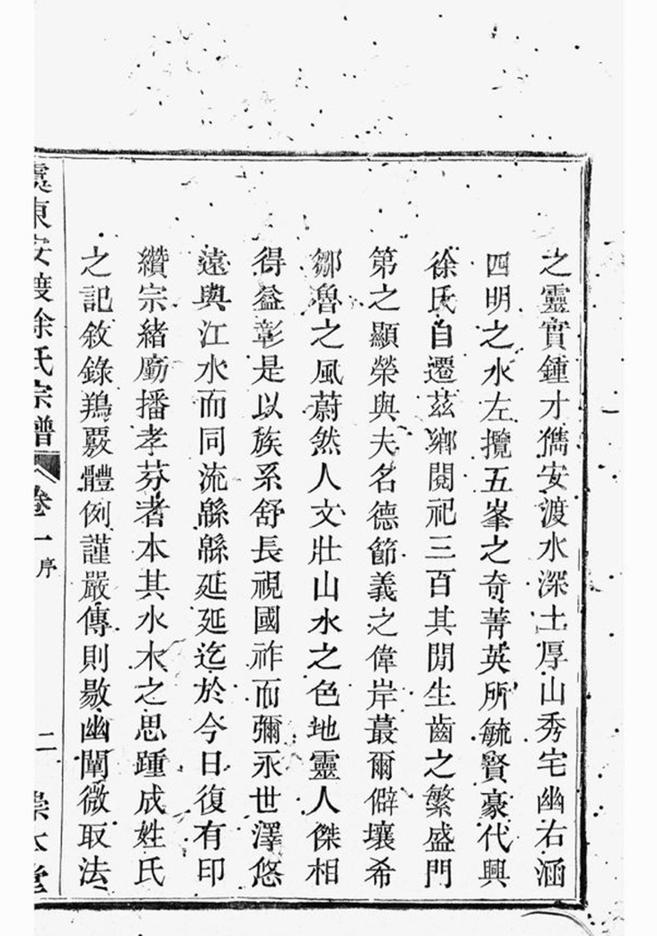 之靈實鍾才儁安渡水深土厚山秀宅幽右涵
四明之水左攬五峯之奇菁英所毓賢豪代興
徐氏自遷茲鄉閱祀三百其閒生齒之繁盛門
第之顯榮與夫名德節義之偉岸蕞爾僻壤希
鄒魯之風蔚然人文壯山水之色地靈人傑相
得益彰是以族系舒長視國祚而彌永世澤悠
遠與江水而同流緜緜延延迄於今日復有印
纘宗緒勵播孝芬者本其水木之思踵成姓氏
之記敘錄鵕覈體例謹嚴傳則敭幽闡微取法
虞東安渡徐氏宗譜 卷一 序 二 崇本堂